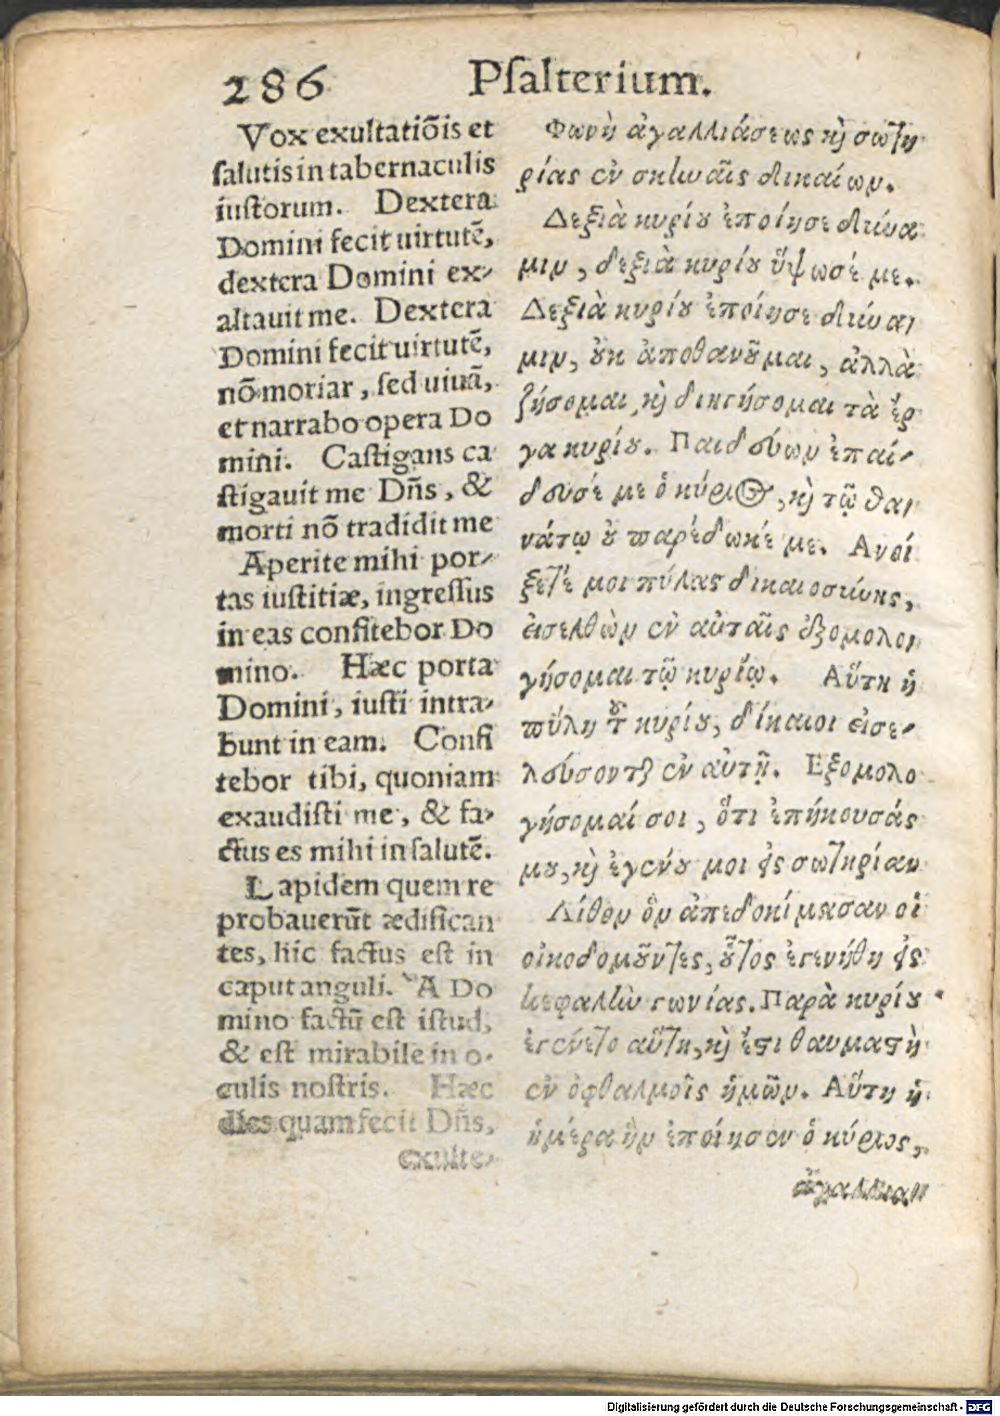 286 Psalterium.
Vox exultatiõis et
salutis in tabernaculis
iustorum. Dextera
Domini fecit uirtutẽ,
dextera Domini ex-
altauit me. Dextera
Domini fecit uirtutẽ,
nõ moriar, sed uiuã,
et narrabo opera Do
mini. Castigans ca
stigauit me Dñs, &
morti nõ tradidit me
Aperite mihi por-
tas iustitiæ, ingressus
in eas confitebor Do
mino. Hæc porta
Domini, iusti intra-
bunt in eam. Confi
tebor tibi, quoniam
exaudisti me, & fa-
ctus es mihi in salutẽ.
Lapidem quem re
probauerũt ædifican
tes, hic factus est in
caput anguli. A Do
mino factũ est istud,
& est mirabile in o-
culis nostris. Hæc
dies quam fecit Dñs,
exulte-
Φωνὴ ἀγαλλιάσεως κὶ σωτη
ρίας ἐν σκηναῖς δικαίων.
Δεξιὰ κυρίου ἐποίησε δύνα
μιν, δεξιὰ κυρίου ὕψωσέ με.
Δεξιὰ κυρίου ἐποίησε δύνα
μιν, οὐκ ἀποθανοῦμαι, ἀλλὰ
ζήσομαι, κὶ διηγήσομαι τὰ ἔρ
γα κυρίου. Παιδεύων ἐπαί-
δευσέ με ὁ κύριος, κὶ τῷ θα
νάτῳ οὐ παρέδωκέ με. Ἀνοί
ξετέ μοι πύλας δικαιοσύνης,
εἰσελθὼν ἐν αὐταῖς ἐξομολο
γήσομαι τῷ κυρίῳ. Αὕτη ἡ
πύλη τοῦ κυρίου, δίκαιοι εἰσε-
λεύσονται ἐν αὐτῇ. Ἐξομολο
γήσομαί σοι, ὅτι ἐπήκουσάς
μου, κὶ ἐγένου μοι εἰς σωτηρίαν
Λίθον ὃν ἀπεδοκίμασαν οἱ
οἰκοδομοῦντες, οὗτος ἐγενήθη εἰς
κεφαλὴν γωνίας. Παρὰ κυρίου
ἐγένετο αὕτη, κὶ ἔστι θαυμαστὴ
ἐν ὀφθαλμοῖς ἡμῶν. Αὕτη ἡ
ἡμέρα ἣν ἐποίησεν ὁ κύριος,
ἀγαλλια
Digitalisierung gefördert durch die Deutsche Forschungsgemeinschaft - DFG